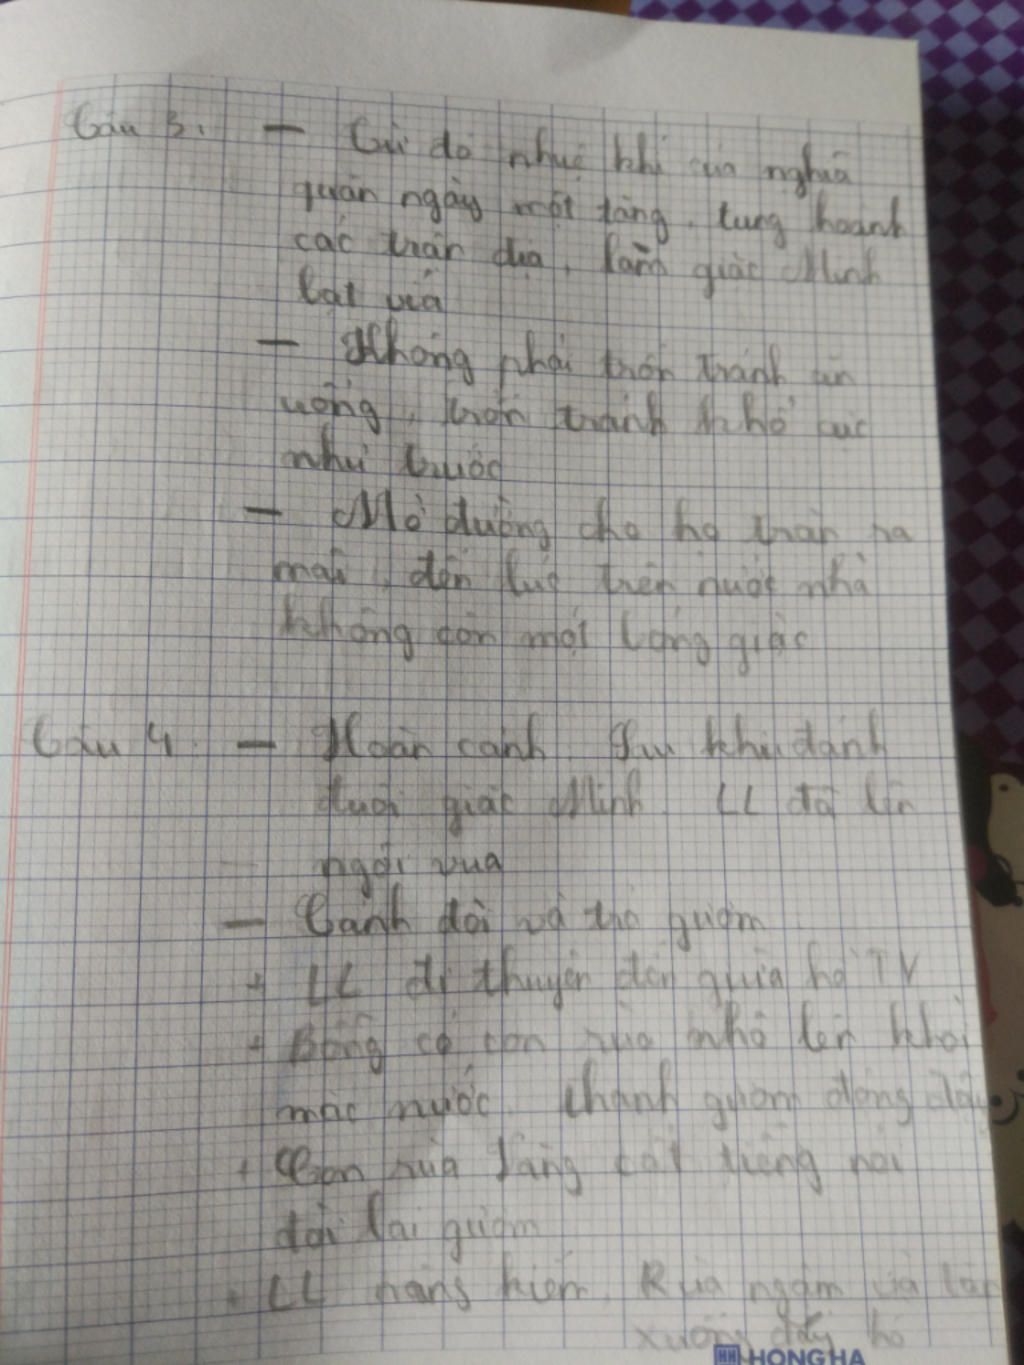 Câu 3. — Từ đó nhuệ khí của nghĩa
quân ngày một tăng. tung hoành
các trận địa, làm giặc Minh
bạt vía
— Không phải trốn tránh ăn
uống, trốn tránh khổ cực
như trước
— Mở đường cho họ tràn ra
mãi, đến lúc trên nước nhà
không còn một bóng giặc
Câu 4. — Hoàn cảnh. Sau khi đánh
đuổi giặc Minh. LL đã lên
ngôi vua
— Cảnh đòi và trả gươm
+ LL đi thuyền đến giữa hồ TV
+ Bỗng có con rùa nhô lên khỏi
mặc nước. thanh gươm động đậy
+ Con rùa vàng cất tiếng nói
đòi lại gươm
+ LL nâng kiếm. Rùa ngậm và lặn
xuống đáy hồ
HH HONG HA